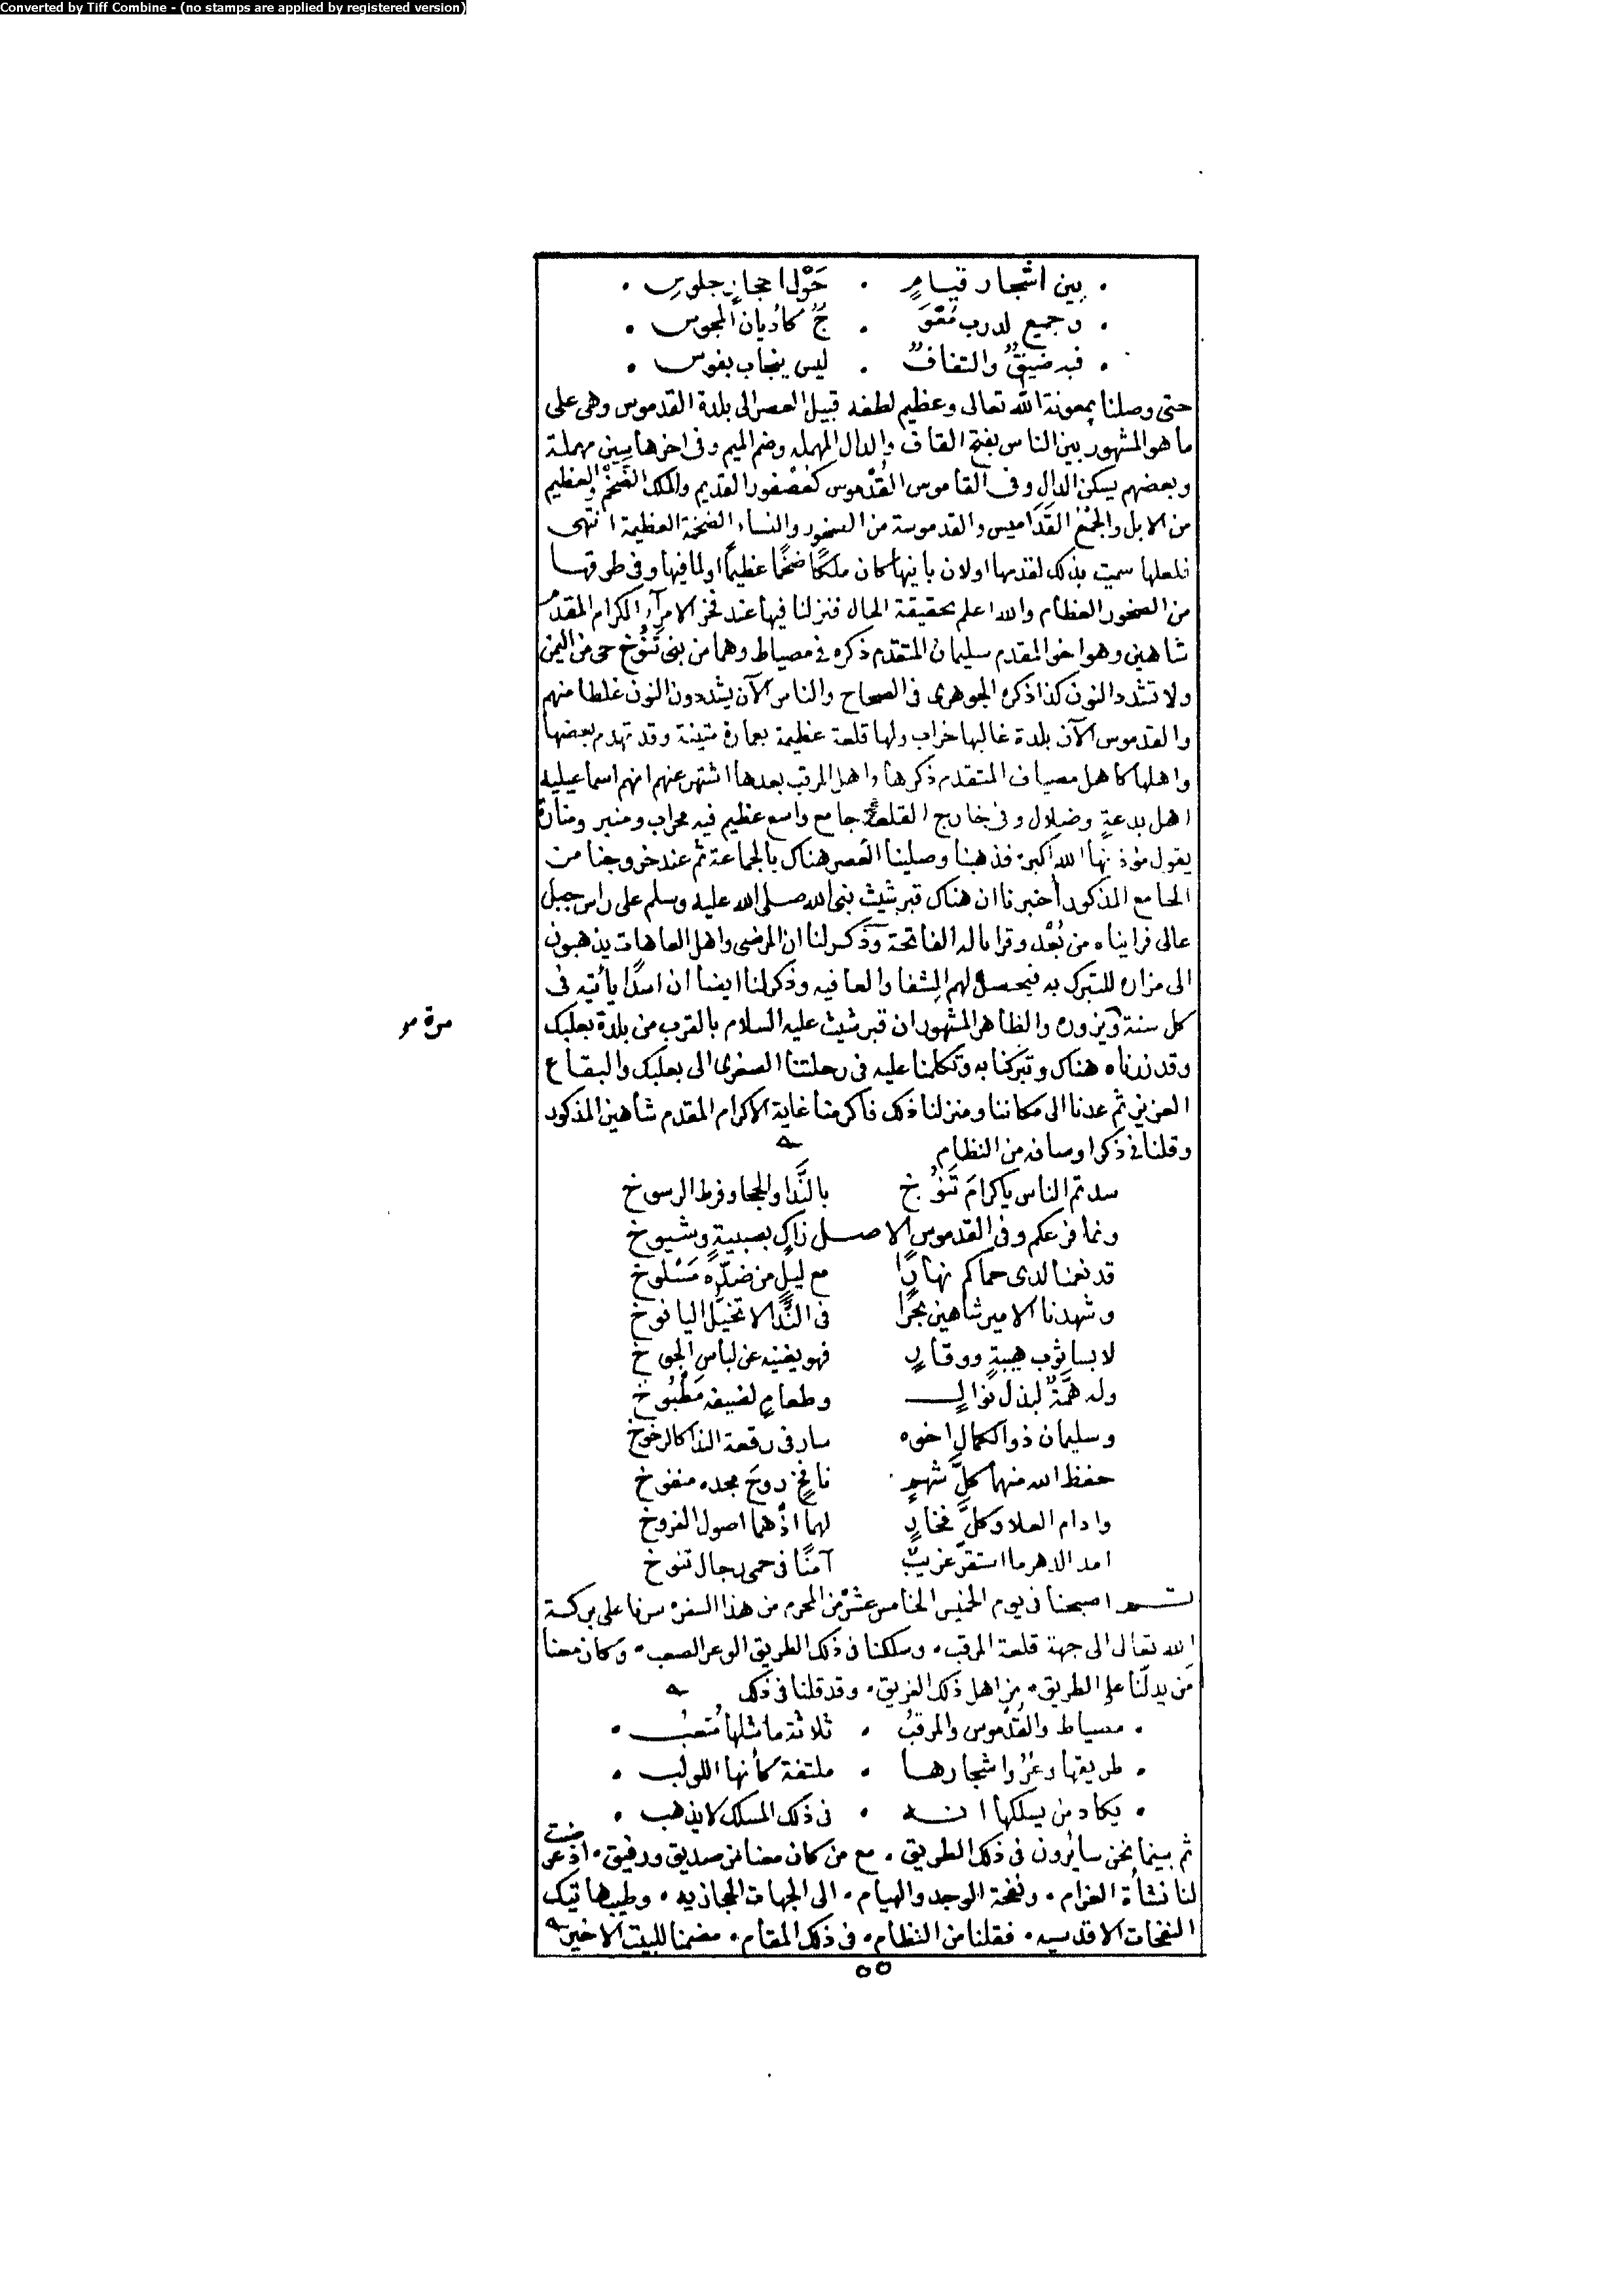 Converted by Tiff Combine - (no stamps are applied by registered version)
• بين اشجار قيامٍ • حَوْل احجارٍ جلوسِ •
• وجميع الدرب مُعْوَ • جٌّ كاديان المجوس •
• فيه ضيقٌ والتفافٌ • ليس ينجاب بفوس •
حتى وصلنا بمعونة الله تعالى وعظيم لطفه قبيل العصر الى بلدة القدموس وهى على
ما هو المشهور بين الناس بفتح القاف والدال المهمله وضم الميم وفى اخرها سين مهملة
وبعضهم يسكن الدال وفى القاموس القُدْموس كعُصْفور القديم والملك الضَخْمُ والعظيم
من الابل والجَمْعُ القَدَاميس والقدموسة من الصخور والنساء الضخمة العظيمة انتهى
فلعلها سميت بذلك لقدمها اولان بانيها كان ملكًا ضخمًا عظيمًا اولما فيها وفى طرقها
من الصخور العظام والله اعلم بحقيقة الحال فنزلنا فيها عند فخر الامرآء الكرام المقدم
شاهين وهو اخو المقدم سليمان المتقدم ذكره فى مصياط وهما من بنى تَنُوخ حى من اليمن
ولا تشدد النون كذا ذكره الجوهرى فى الصحاح والناس الآن يشددون النون غلطا منهم
والقدموس الآن بلدة غالبها خراب ولها قلعة عظيمة بعمارة متينة وقد تهدم بعضها
واهلها كاهل مصياف المتقدم ذكرها واهل المرقب بعدها اشتهر عنهم انهم اسماعيليه
اهل بدعةٍ وضلال وفى خارج القلعة جامع واسع عظيم فيه محراب ومنبر ومنارة
يقول مؤذنها الله اكبر فذهبنا وصلينا العصر هناك بالجماعة ثم عند خروجنا من
الجامع المذكور أخبرنا ان هناك قبر شيث نبى الله صلى الله عليه وسلم على راس جبل
عالى فرايناه من بُعْد وقرانا له الفاتحة وذكر لنا ان المرضى واهل العاهات يذهبون
الى مزاره للتبرك به فيحصل لهم الشفا والعافيه وذكر لنا ايضا ان اسدًا يأتيه فى
كل سنة ويزوره والظاهر المشهور ان قبر شيث عليه السلام بالقرب من بلدة بعلبك
مرة
وقد زرناه هناك وتبركنا به وتكلمنا عليه فى رحلتنا الصغرى الى بعلبك والبقاع
العزيز ثم عدنا الى مكاننا ومنزلنا ذلك فاكرمنا غاية الاكرام المقدم شاهين المذكور
وقلنا فى ذكر اوصافه من النظام
سدتم الناس ياكرامَ تَنُوْخ بالنَّدا والحجا وفرط الرسوخ
ونما فرعكم وفى القدموس الاصل زاكٍ بصبيةٍ وشيوخ
قد نعمنا لدى حماكم نهارًا مع ليلٍ من ضدّه مَسْلوخ
وشهدنا الامير شاهين بحرًا فى النَّدا لا تخيُّل اليافوخ
لابسا ثوب هيبةٍ ووقارٍ فهو يغنيه عن لباس الجوخ
وله همَّةٌ لبذل نوالٍ وطعامٍ لضيفه مَطْبُوخ
وسليمان ذو الكمال اخوه سار فى رقعة الندا كالرخوخ
حفظ الله منهما كلَّ شهمٍ نافخٍ روحَ مجده منفوخ
وادام العلا وكلَّ فخارٍ لهما اذْ هما اصول الفروخ
امد الدهر ما استقرّ غريبٌ آمنًا فى حمى رجال تنوخ
ثم اصبحنا فى يوم الخميس الخامس عشر من المحرم من هذا السفره سرنا على بركة
الله تعالى الى جهة قلعة المرقب • وسلكنا فى ذلك الطريق الوعر الصعب • وكان معنا
مَن يدلّنا على الطريق • من اهل ذلك الفريق • وقد قلنا فى ذلك
• مصياط والقُدْموس والمرقبُ • ثلاثة ما مثلها مُتعبُ •
• طريقها وعرٌ واشجارها • ملتفة كأنها اللولب •
• يكاد من يسلكها انه • فى ذلك المسلك لا يذهب •
ثم بينما نحن سائرون فى ذلك الطريق • مع من كان معنا من صديق ورفيق • اذ عرضت
لنا نشأة الغرام • ونفحة الوجد والهيام • الى الجهات الحجازيه • وطيب هاتيك
النفحات الاقدسيه • فقلنا من النظام • فى ذلك المقام • مضمنا للبيت الاخير
٥٥